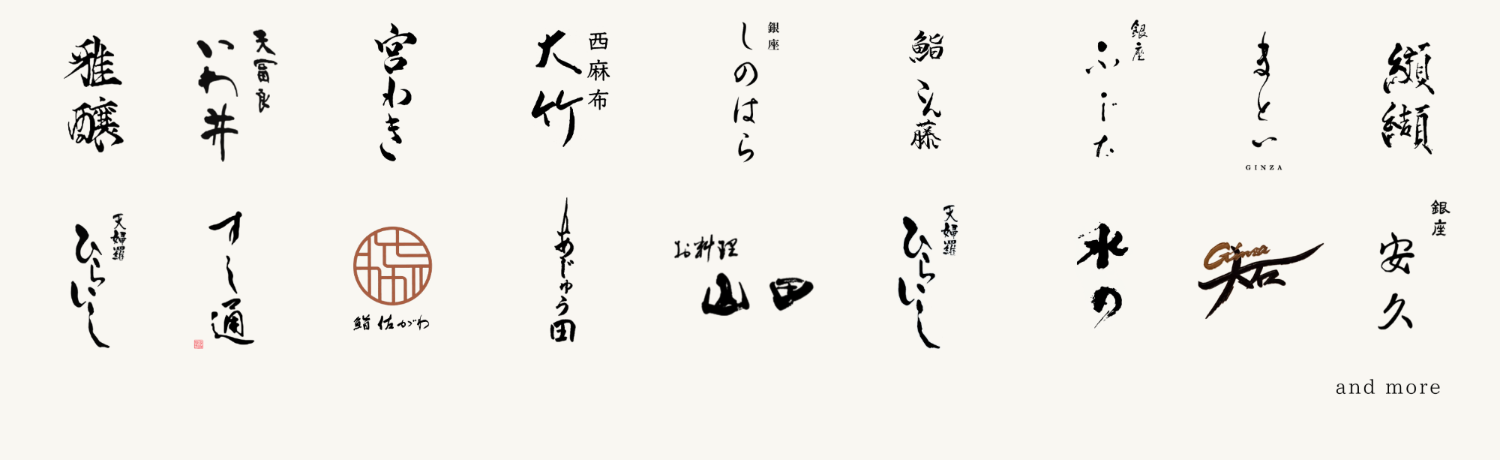 雅醸
天冨良
いわ井
宮わき
西麻布
大竹
銀座
しのはら
鮨 こん藤
銀座
ふじた
まとい
GINZA
纐纈
天婦羅
ひらいし
すし通
鮨 佐がわ
お料理
山田
天婦羅
ひらいし
水の
Ginza
大石
銀座
安久
and more